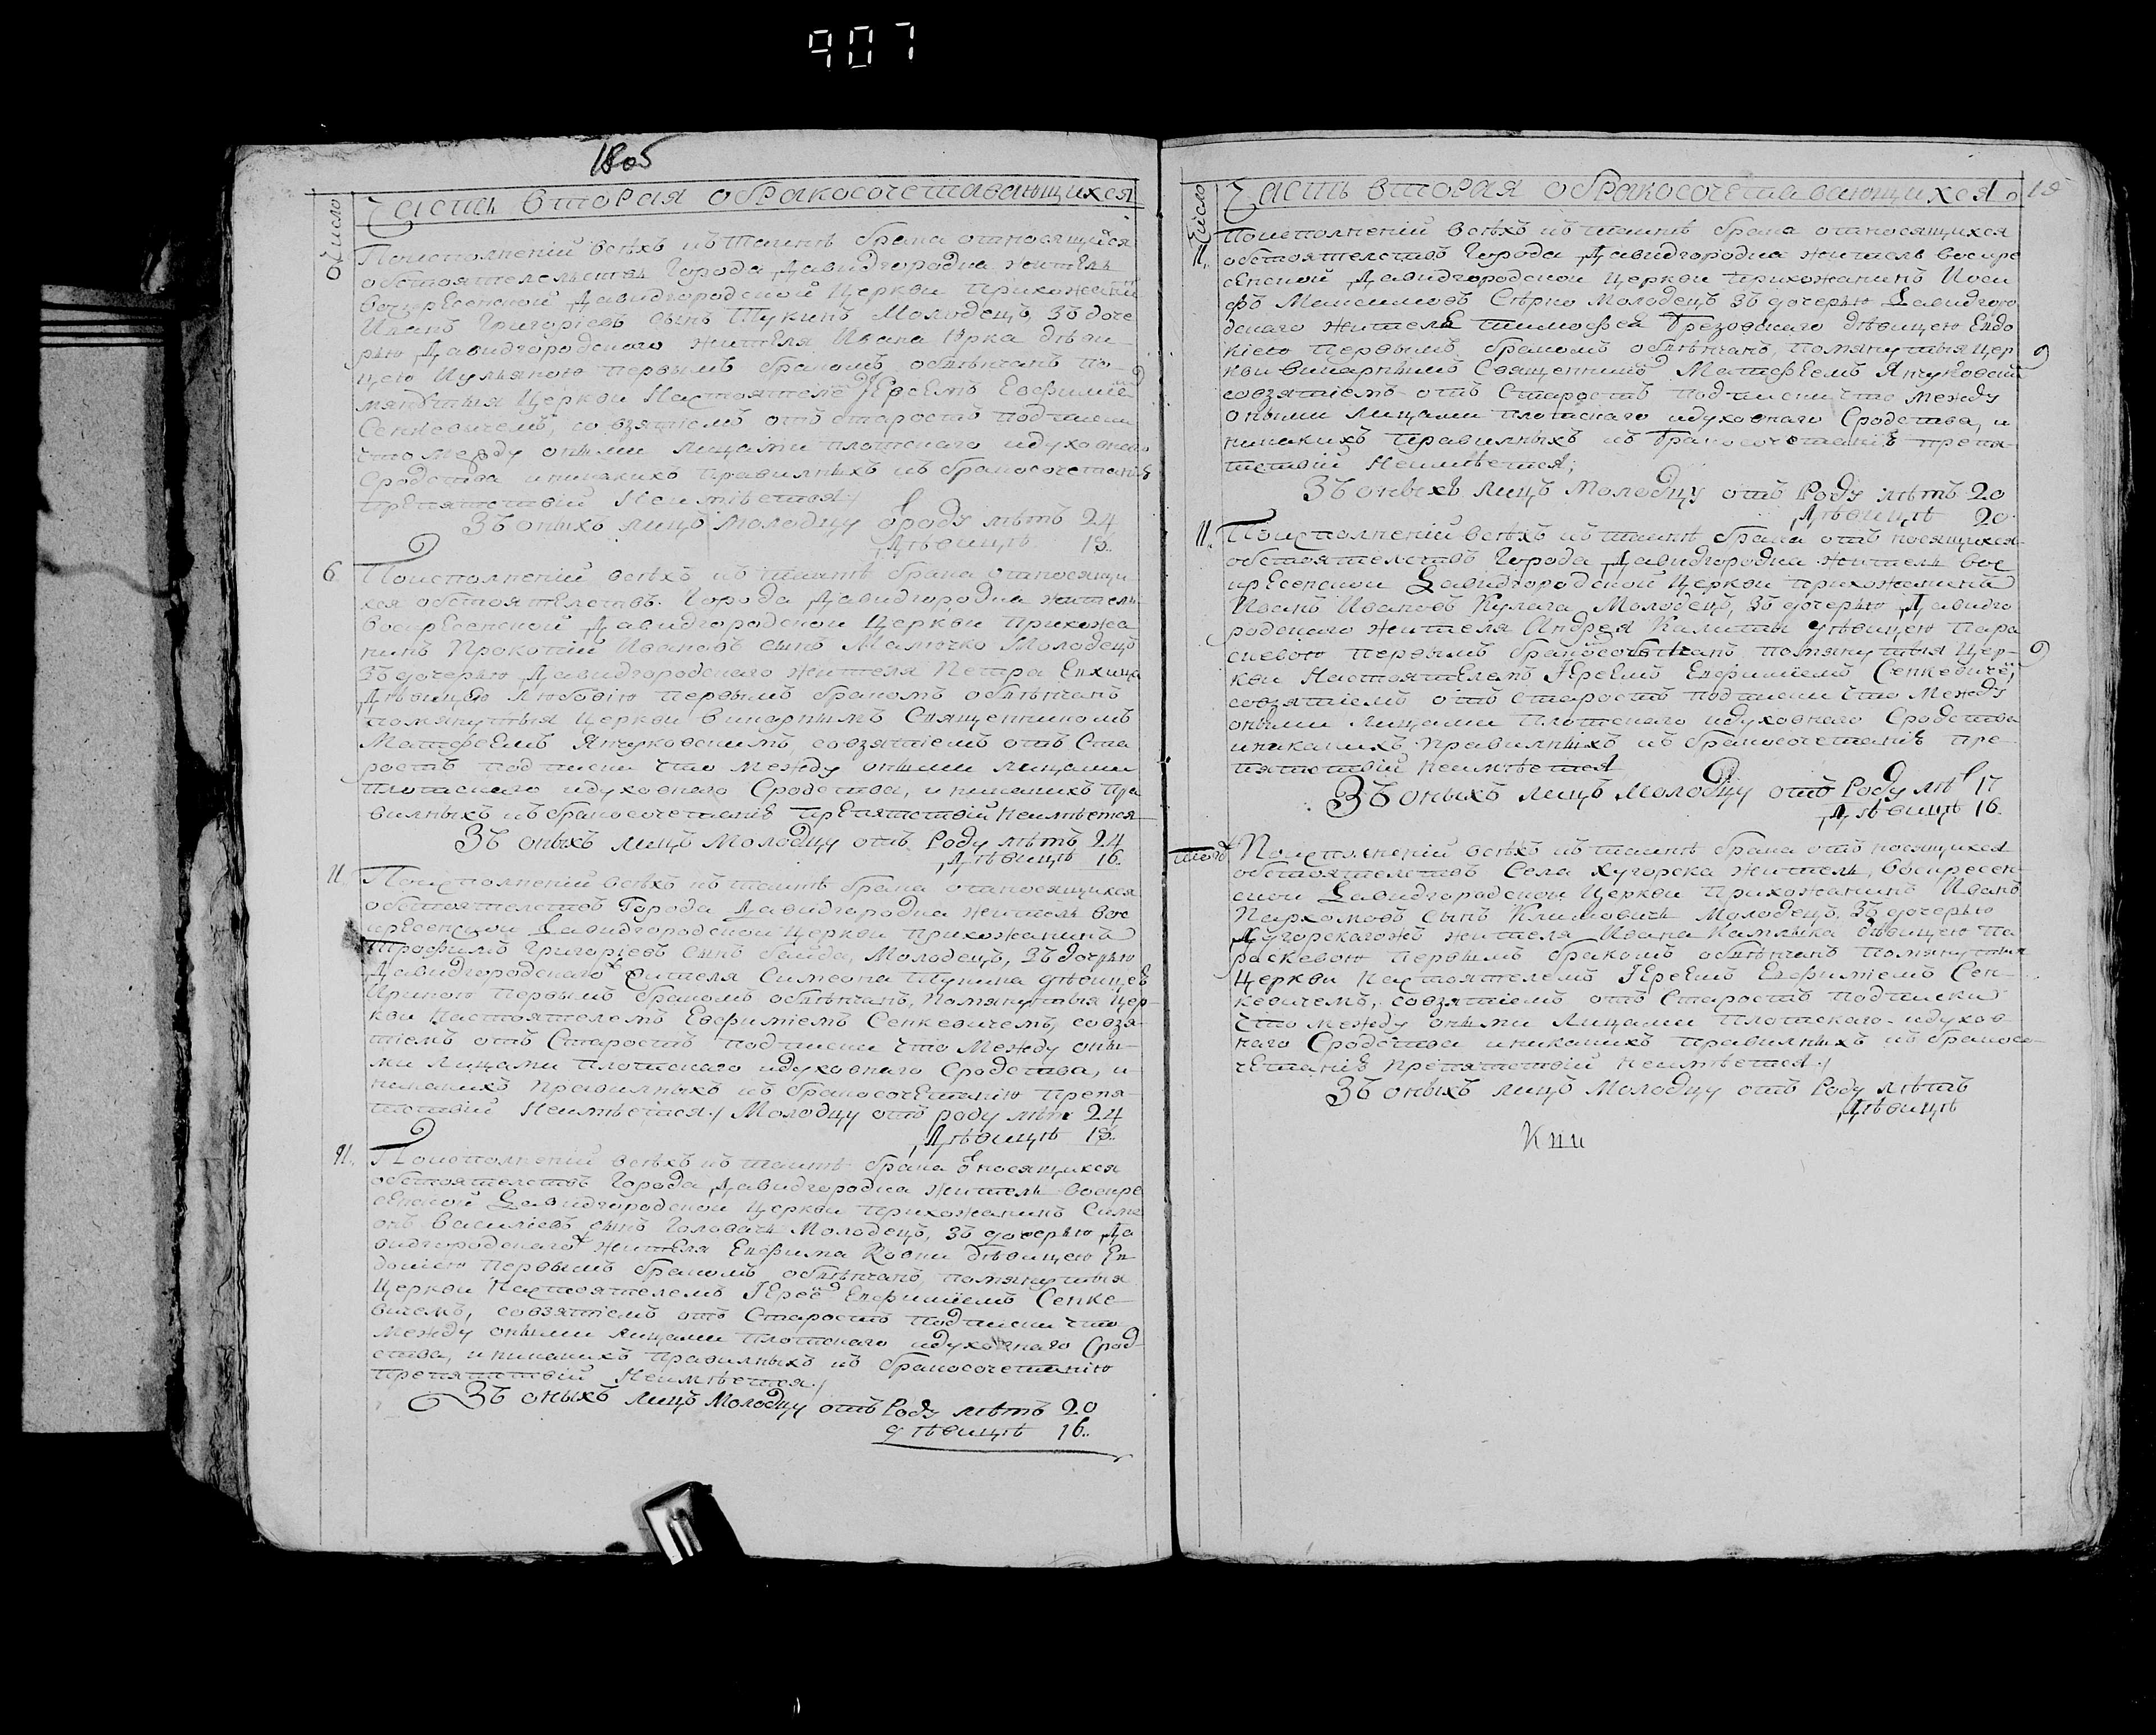 907
1805
Число
Часть вторая обракосочетавающихся
Поисполненій всѣхъ къ таинѣ брака относящихся
обстоятельствъ Города Давидгородка житель
воскресенской Давидгородской Церкви прихожанин
Иванъ Григоріевъ сынъ Тукинъ Молодецъ, зъ доче
рью Давидгородскаго жителя Ивана Юрка дѣви
цею Иульяною первымъ бракомъ обвѣнчанъ по
мянутыя Церкви Настоятеле Іереемъ Евфиміе
Сенкевичемъ, совзятіемъ отъ старостъ подписки
что между оными лицами плотскаго идуховнаго
Сродства иникакихъ правилныхъ къ бракосочетанію
препятствій Неимѣется
Зъ оныхъ лицъ молодцу о роду лѣтъ 24
Дѣвицѣ 18..
6. Поисполненій всѣхъ къ таинѣ брака относящи
хся обстоятелствъ. Города Давидгородка житель
воскресенской Давидгородской Церкви прихожа
нинъ Прокопій Ивановъ сынъ Молодецъ
зъ дочерью Давидгородскаго жителя Петра
Дѣвицею Любовію первымъ бракомъ обвѣнчанъ
помянутыя Церкви викарнымъ Священникомъ
Матфеемъ Янчуковскимъ, совзятіемъ отъ Ста
ростъ подписки что между оными лицами
плотскаго идуховнаго Сродства, и никакихъ пра
вилныхъ къ бракосочетаніе препятствій Неимѣется
Зъ оныхъ лицъ Молодцу отъ Роду лѣтъ 24
Дѣвицѣ 16.
11. Поисполненій всѣхъ къ таинѣ брака относящихся
обстоятелствъ Города Давидгородка житель вос
кресенской Давидгородской Церкви прихожанинъ
Трофимъ Григоріевъ сынъ байда, Молодецъ, зъ дочерью
Давидгородскаго жителя Симеона Тукина дѣвицею
Ириною первымъ бракомъ обвѣнчанъ, помянутыя Цер
кви Настоятелемъ Евфиміемъ Сенкевичемъ, совзя
тіемъ отъ Старостъ подписки что Между оны
ми лицами плотскаго идуховнаго Сродства, и
никакихъ правилныхъ къ бракосочетанію препя
тствій Неимѣется Молодцу отъ роду лѣтъ 24
Дѣвицѣ 18..
11. Поисполненій всѣхъ къ таинѣ брака относящихся
обстоятелствъ Города Давидгородка житель воскре
сенской Давидгородской Церкви прихожанинъ Симе
онъ Василіевъ сынъ Головачь Молодецъ, зъ дочерью Да
видгородскаго жителя Евфима Ковки дѣвицею Ев
докіею первымъ бракомъ обвѣнчанъ, помянутыя
Церкви Настоятелемъ Іерее Евфиміемъ Сенке
вичемъ, совзятіемъ отъ Старостъ подписки что
между оными лицами плотскаго идуховнаго Срод
ства, и никакихъ правилныхъ къ бракосочетанію
препятствій Неимѣется
Зъ оныхъ лицъ Молодцу отъ Роду лѣтъ 20
дѣвицѣ 16..
Число
Часть вторая обракосочетавающихся
11. Поисполненій всѣхъ къ таинѣ брака относящихся
обстоятелствъ Города Давидгородка житель воскре
сенской Давидгородской Церкви прихожанинъ Иоси
фъ Максимовъ Сѣрко Молодецъ зъ дочерью Давидгоро
дскаго жителя тимофея Брезовскаго дѣвицею Евдо
кіею первымъ бракомъ обвѣнчанъ, помянутыя Цер
кви викарнымъ Священникомъ Матфеемъ Янчуковски
совзятіемъ отъ Старостъ подписки что между
оными лицами плотскаго идуховнаго Сродства, и
никакихъ правилныхъ къ бракосочетаніе препя
тствій Неимѣется;
Зъ оныхъ лицъ Молодцу отъ Роду лѣтъ 20
Дѣвицѣ 20.
11. Поисполненій всѣхъ къ таинѣ брака относящихся
обстоятелствъ Города Давидгородка житель вос
кресенской Давидгородской Церкви прихожанинъ
Иванъ Ивановъ Кулага Молодецъ, зъ дочерью Давидго
родскаго жителя Андрея Калиты дѣвицею Пара
скевою первымъ бракосочетанъ помянутыя Цер
кви Настоятелемъ Іереемъ Евфиміемъ Сенкевиче,
совзятіемъ отъ Старостъ подписки что Между
оными лицами плотскаго идуховнаго Сродства
иникакихъ правилныхъ къ бракосочетаніе пре
пятствій неимѣется
Зъ оныхъ лицъ Молодцу отъ Роду лѣ 17
Дѣвицѣ 16.
тогож Поисполненій всѣхъ къ таинѣ брака относящихся
обстоятелствъ Села Хугорска житель, воскресен
ской Давидгородской Церкви прихожанинъ Иванъ
Пархомовъ сынъ Климовичъ Молодецъ, зъ дочерью
Хугорскагожъ жителя Ивана Камлюка дѣвицею Па
раскевою первымъ бракомъ обвѣнчанъ помянутыя
Церкви Настоятелемъ Іереемъ Евфиміемъ Сен
кевичемъ, совзятіемъ отъ Старостъ подписки
что между оными лицами плотскаго идухов
наго Сродства иникакихъ правилныхъ къ бракосо
четаніе препятствій неимѣется
Зъ оныхъ лицъ Молодцу отъ Роду лѣтъ
Дѣвицѣ